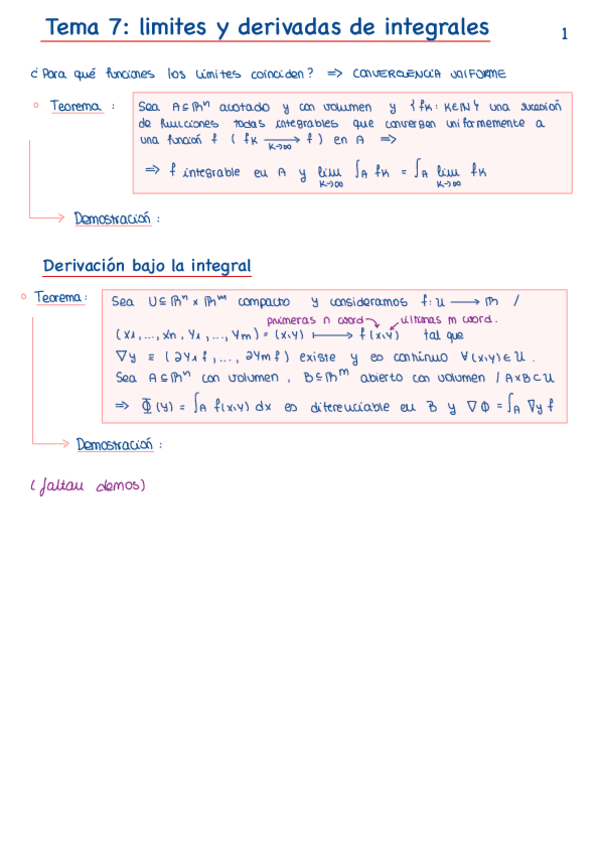 Tema 7: limites y derivadas de integrales
1
¿Para qué funciones los límites coinciden? => CONVERGENCIA UNIFORME
Teorema :
Sea A⊆ℝⁿ acotado y con volumen y {fₖ: K∈ℕ} una sucesión
de funciones todas integrables que convergen uniformemente a
una función f ( fₖ ⟶ f ) en A =>
K→∞
=> f integrable en A y lim ∫_A fₖ = ∫_A lim fₖ
K→∞ K→∞
Demostración :
Derivación bajo la integral
Teorema :
Sea U⊆ℝⁿ×ℝᵐ compacto y consideramos f: U ⟶ ℝ /
primeras n coord últimas m coord.
(x₁, ..., xn, y₁, ..., ym) = (x,y) ⟼ f(x,y) tal que
∇y ≡ (∂y₁f, ..., ∂ymf) existe y es continuo ∀(x,y)∈U.
Sea A⊆ℝⁿ con volumen, B⊆ℝᵐ abierto con volumen / A×B⊂U
=> Φ(y) = ∫_A f(x,y) dx es diferenciable en B y ∇Φ = ∫_A ∇y f
Demostración :
(faltan demos)